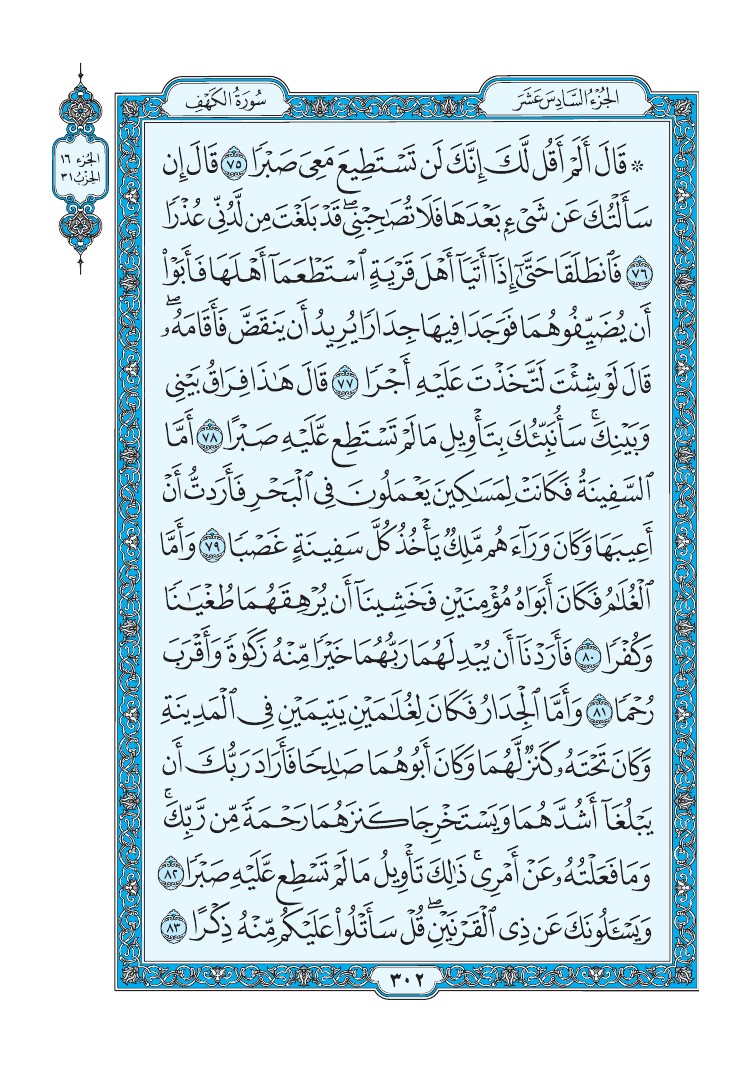 سُورَةُ الكَهْفِ
الجُزْءُ السَّادِسَ عَشَرَ
الجزء ١٦
الحِزْبُ ٣١
۞ قَالَ أَلَمْ أَقُل لَّكَ إِنَّكَ لَن تَسْتَطِيعَ مَعِىَ صَبْرًا ٧٥ قَالَ إِن
سَأَلْتُكَ عَن شَىْءِۭ بَعْدَهَا فَلَا تُصَٰحِبْنِىۖ قَدْ بَلَغْتَ مِن لَّدُنِّى عُذْرًا
٧٦ فَٱنطَلَقَا حَتَّىٰٓ إِذَآ أَتَيَآ أَهْلَ قَرْيَةٍ ٱسْتَطْعَمَآ أَهْلَهَا فَأَبَوْا۟
أَن يُضَيِّفُوهُمَا فَوَجَدَا فِيهَا جِدَارًا يُرِيدُ أَن يَنقَضَّ فَأَقَامَهُۥۖ
قَالَ لَوْ شِئْتَ لَتَّخَذْتَ عَلَيْهِ أَجْرًا ٧٧ قَالَ هَٰذَا فِرَاقُ بَيْنِى
وَبَيْنِكَۚ سَأُنَبِّئُكَ بِتَأْوِيلِ مَا لَمْ تَسْتَطِع عَّلَيْهِ صَبْرًا ٧٨ أَمَّا
ٱلسَّفِينَةُ فَكَانَتْ لِمَسَٰكِينَ يَعْمَلُونَ فِى ٱلْبَحْرِ فَأَرَدتُّ أَنْ
أَعِيبَهَا وَكَانَ وَرَآءَهُم مَّلِكٌ يَأْخُذُ كُلَّ سَفِينَةٍ غَصْبًا ٧٩ وَأَمَّا
ٱلْغُلَٰمُ فَكَانَ أَبَوَاهُ مُؤْمِنَيْنِ فَخَشِينَآ أَن يُرْهِقَهُمَا طُغْيَٰنًا
وَكُفْرًا ٨٠ فَأَرَدْنَآ أَن يُبْدِلَهُمَا رَبُّهُمَا خَيْرًا مِّنْهُ زَكَوٰةً وَأَقْرَبَ
رُحْمًا ٨١ وَأَمَّا ٱلْجِدَارُ فَكَانَ لِغُلَٰمَيْنِ يَتِيمَيْنِ فِى ٱلْمَدِينَةِ
وَكَانَ تَحْتَهُۥ كَنزٌ لَّهُمَا وَكَانَ أَبُوهُمَا صَٰلِحًا فَأَرَادَ رَبُّكَ أَن
يَبْلُغَآ أَشُدَّهُمَا وَيَسْتَخْرِجَا كَنزَهُمَا رَحْمَةً مِّن رَّبِّكَۚ
وَمَا فَعَلْتُهُۥ عَنْ أَمْرِىۚ ذَٰلِكَ تَأْوِيلُ مَا لَمْ تَسْطِع عَّلَيْهِ صَبْرًا ٨٢
وَيَسْـَٔلُونَكَ عَن ذِى ٱلْقَرْنَيْنِۖ قُلْ سَأَتْلُوا۟ عَلَيْكُم مِّنْهُ ذِكْرًا ٨٣
٣٠٢